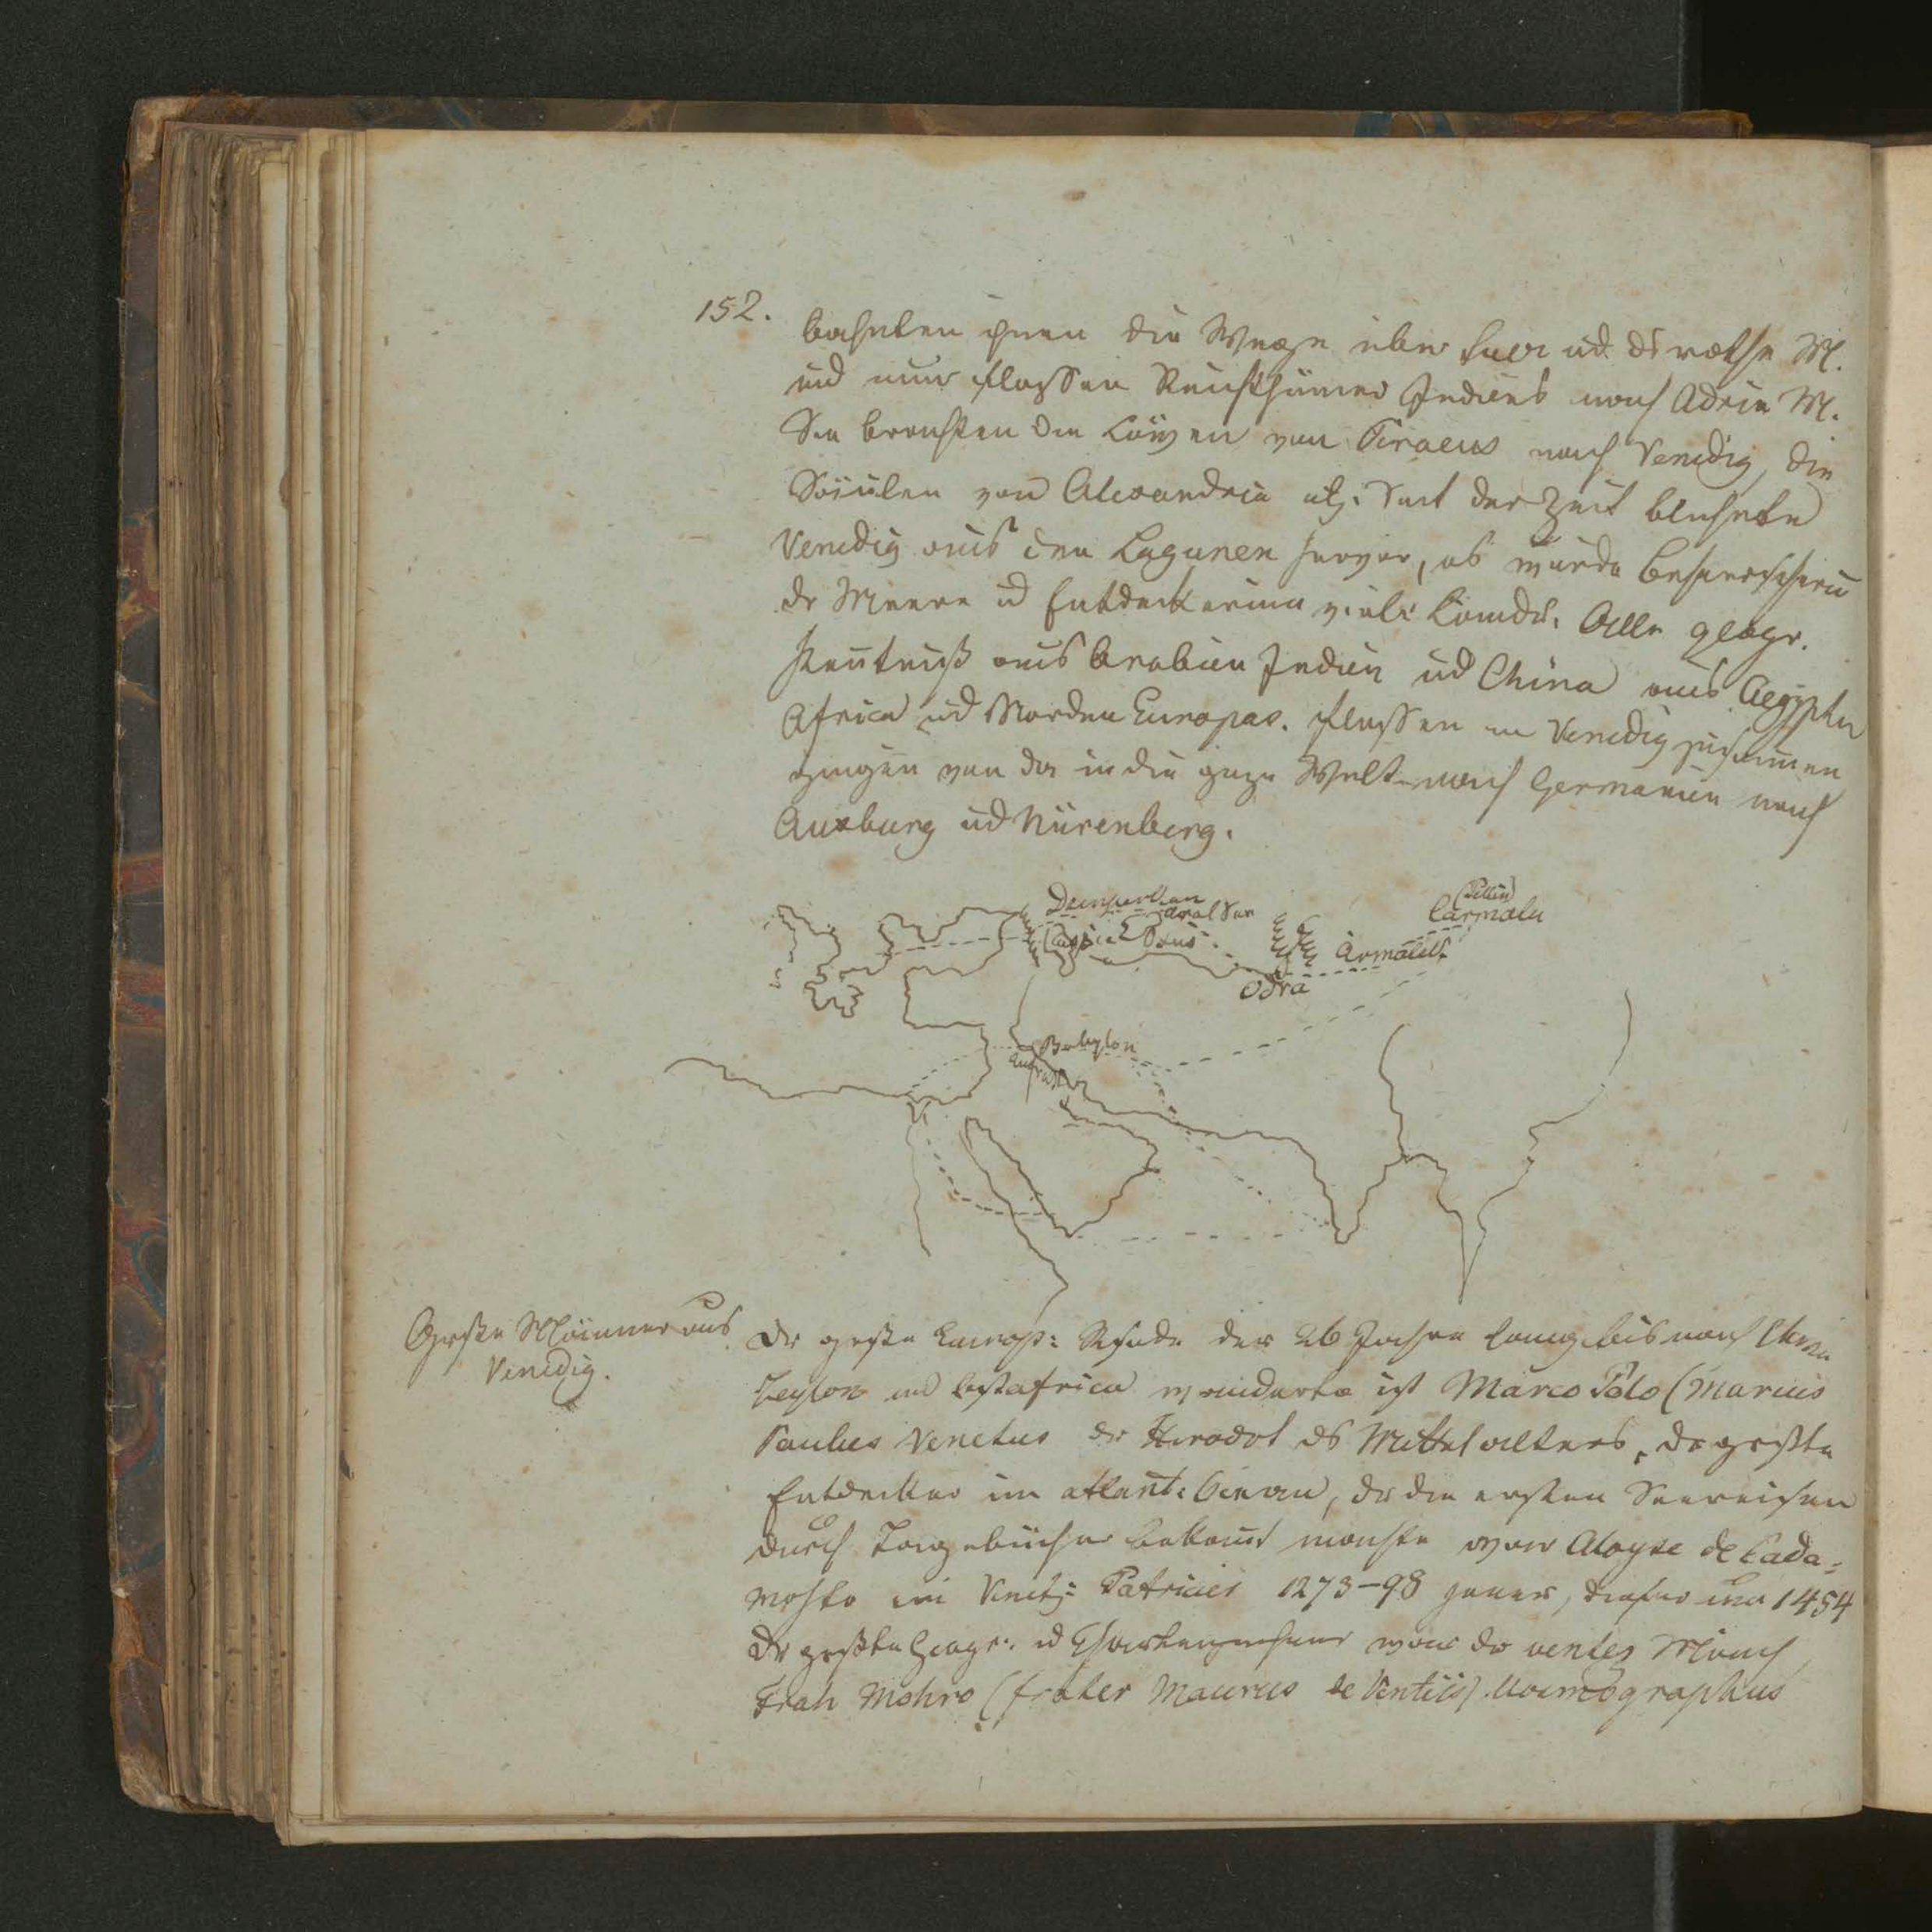 152.
bahnten ihnen die Wege über Suez ud. ds rothe M.
und nun flossen Reichthümer Indiens nach Adria M.
Sie brachten die Löwen von Piraeus nach Venedig, die
Säulen von Alexandria Seit der Zeit blühete
Venedig aus den Lagunen hervor, es wurde Beherrscherin
dr Meere ud Entdeckerinn vieler Länder. Alle geogr.
Kentniß aus Arabien Indien ud China aus Aegypten
Africa ud Norden Europas. flossen in Venedig zusammen
gingen von da in die ganze Welt nach Germanien nach
Auxburg ud Nürenberg.
Aral See
Caspie Oxus
(Pekin)
Odra
Babylon
Große Männer aus
Venedig.
Dr große Europ: Reisende der 26 Jahre lang bis nach China
Zeylon und Ostafrica wanderte ist Marco Polo (Marcus
Paulus Venetus dr Herodot ds Mittelalters, dr größte
Entdecker im atlant: Ocean, dr die ersten Seereisen
durch Tagebücher bekannt machte war Aloyse de Cada=
mosto ein Venetz: Patricier 1273–98 jener, dieser um 1454
Dr größte Geogr: ud Chartenzeichner war dr Mönch
Frah Mohro (frater Maurus de Ventiis) Cosmographus